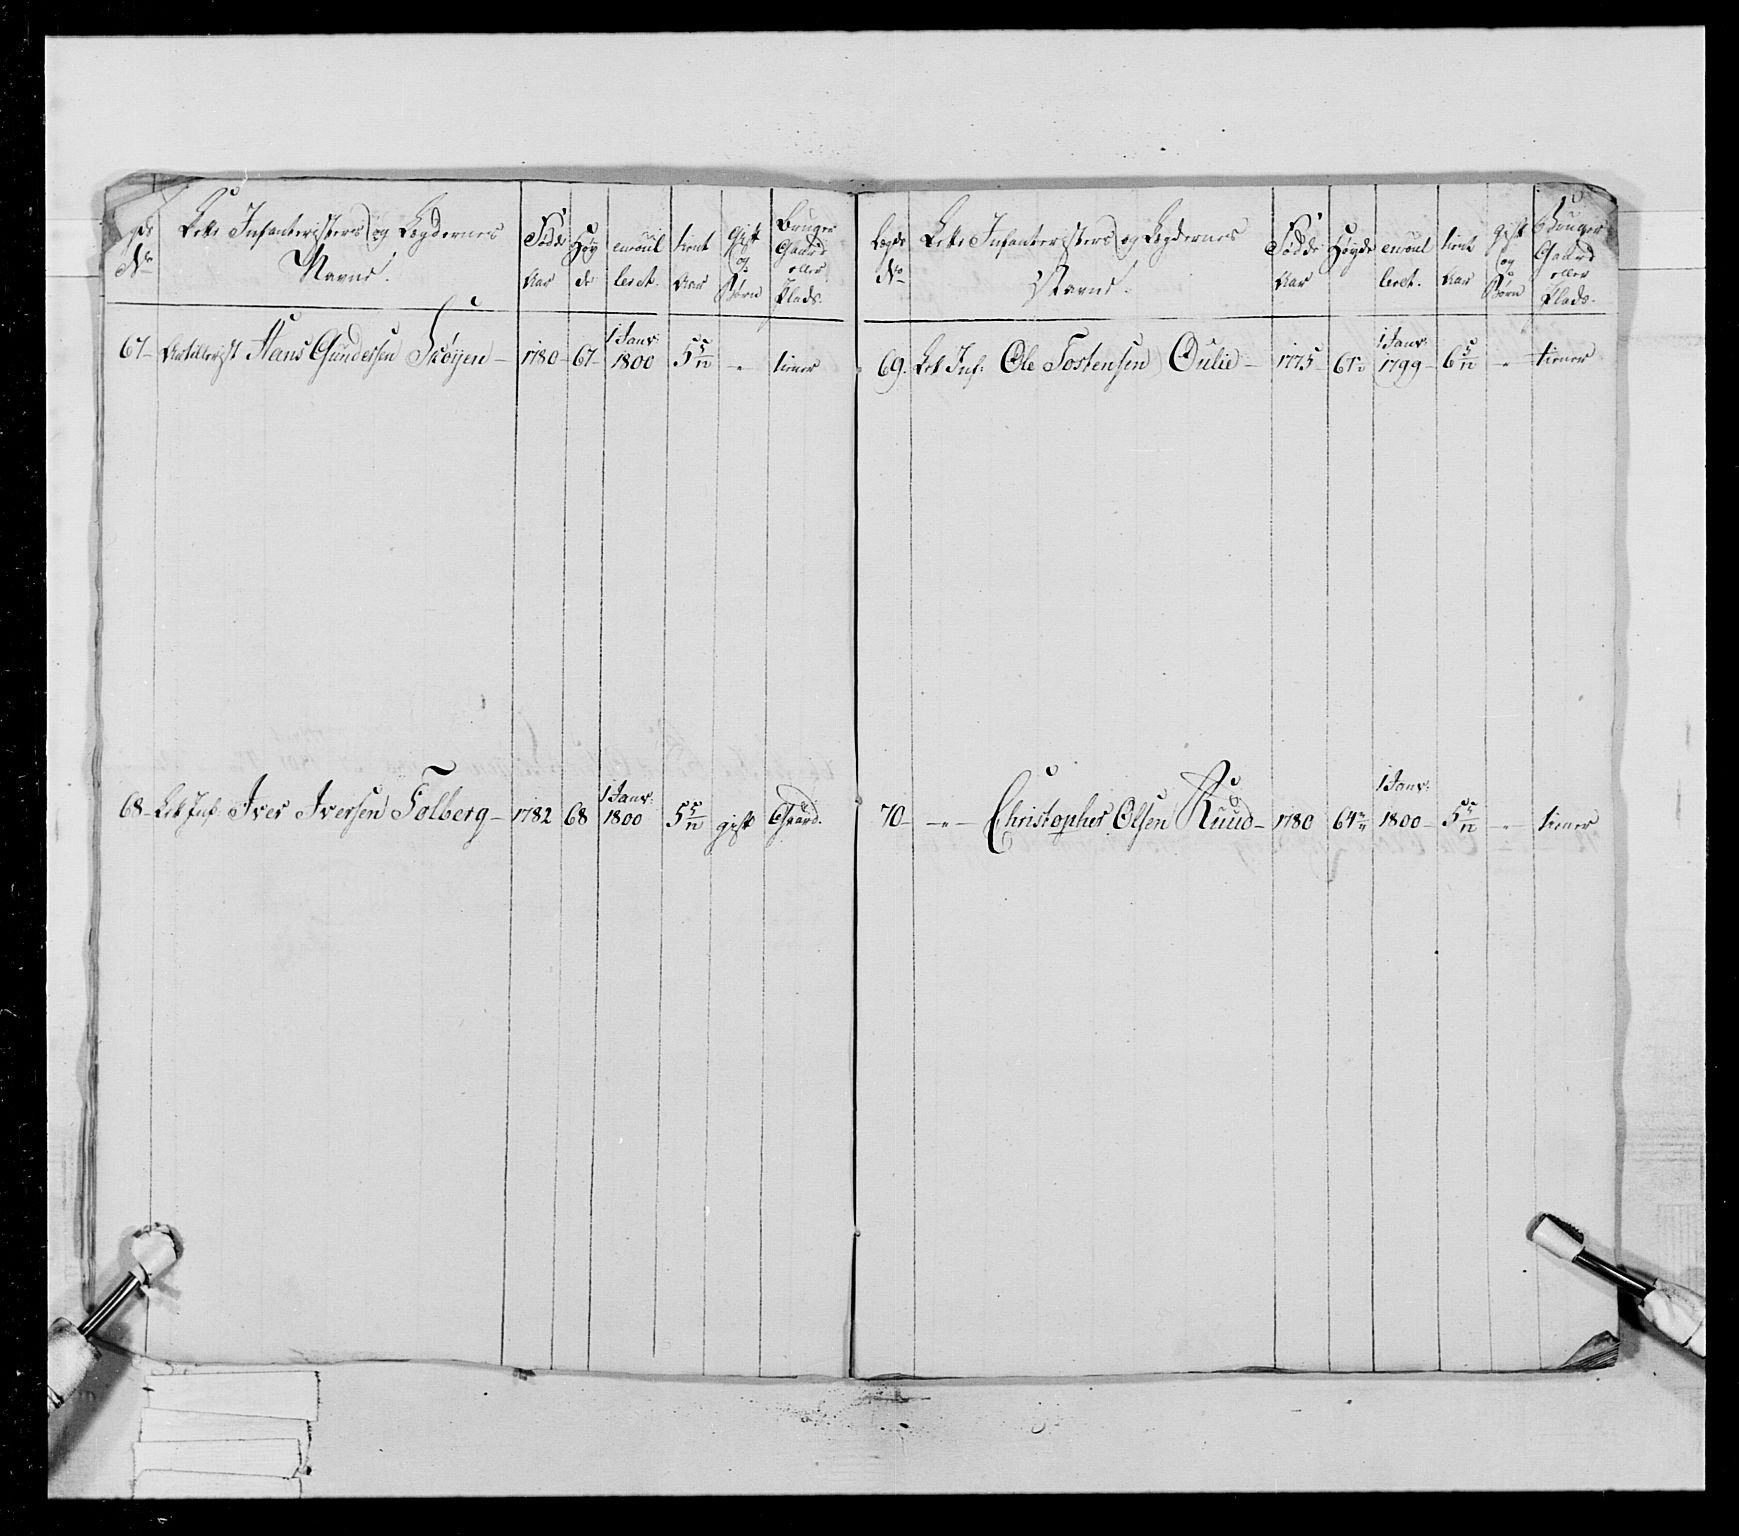 N<sup>o</sup>
Lette Infanteristers og Lægdernes
Navne.
Fødde
Aar
Høy
de
enroul
leret.
tient
Aar
gift
og
Børn
Bruger
Gaard
eller
Plads.
67 — Artillerist Hans Gundersen Skøyen — 1780 — 67 — 1 Janv: 1800 5 5/12 — " — tiener
68 — Let Inf: Iver Iversen Tolberg — 1782 68 1 Janv: 1800 5 5/12 gift Gaard.
Lægds
N<sup>o</sup>
Lette Infanteristers og Lægdernes
Navne.
Fødde
Aar
Høyde
enroul
leret.
tient
Aar
gift
og
Børn
Bruger
Gaard
eller
Plads.
69. Let Inf: Ole Tostensen — 1775 — 1 Janv: 1799 — 6 5/12 — " — tiener
70 — — " — Christopher Olsen Ruud — 1780 64 1 Janv: 1800 — 5 5/12 — " — tiener